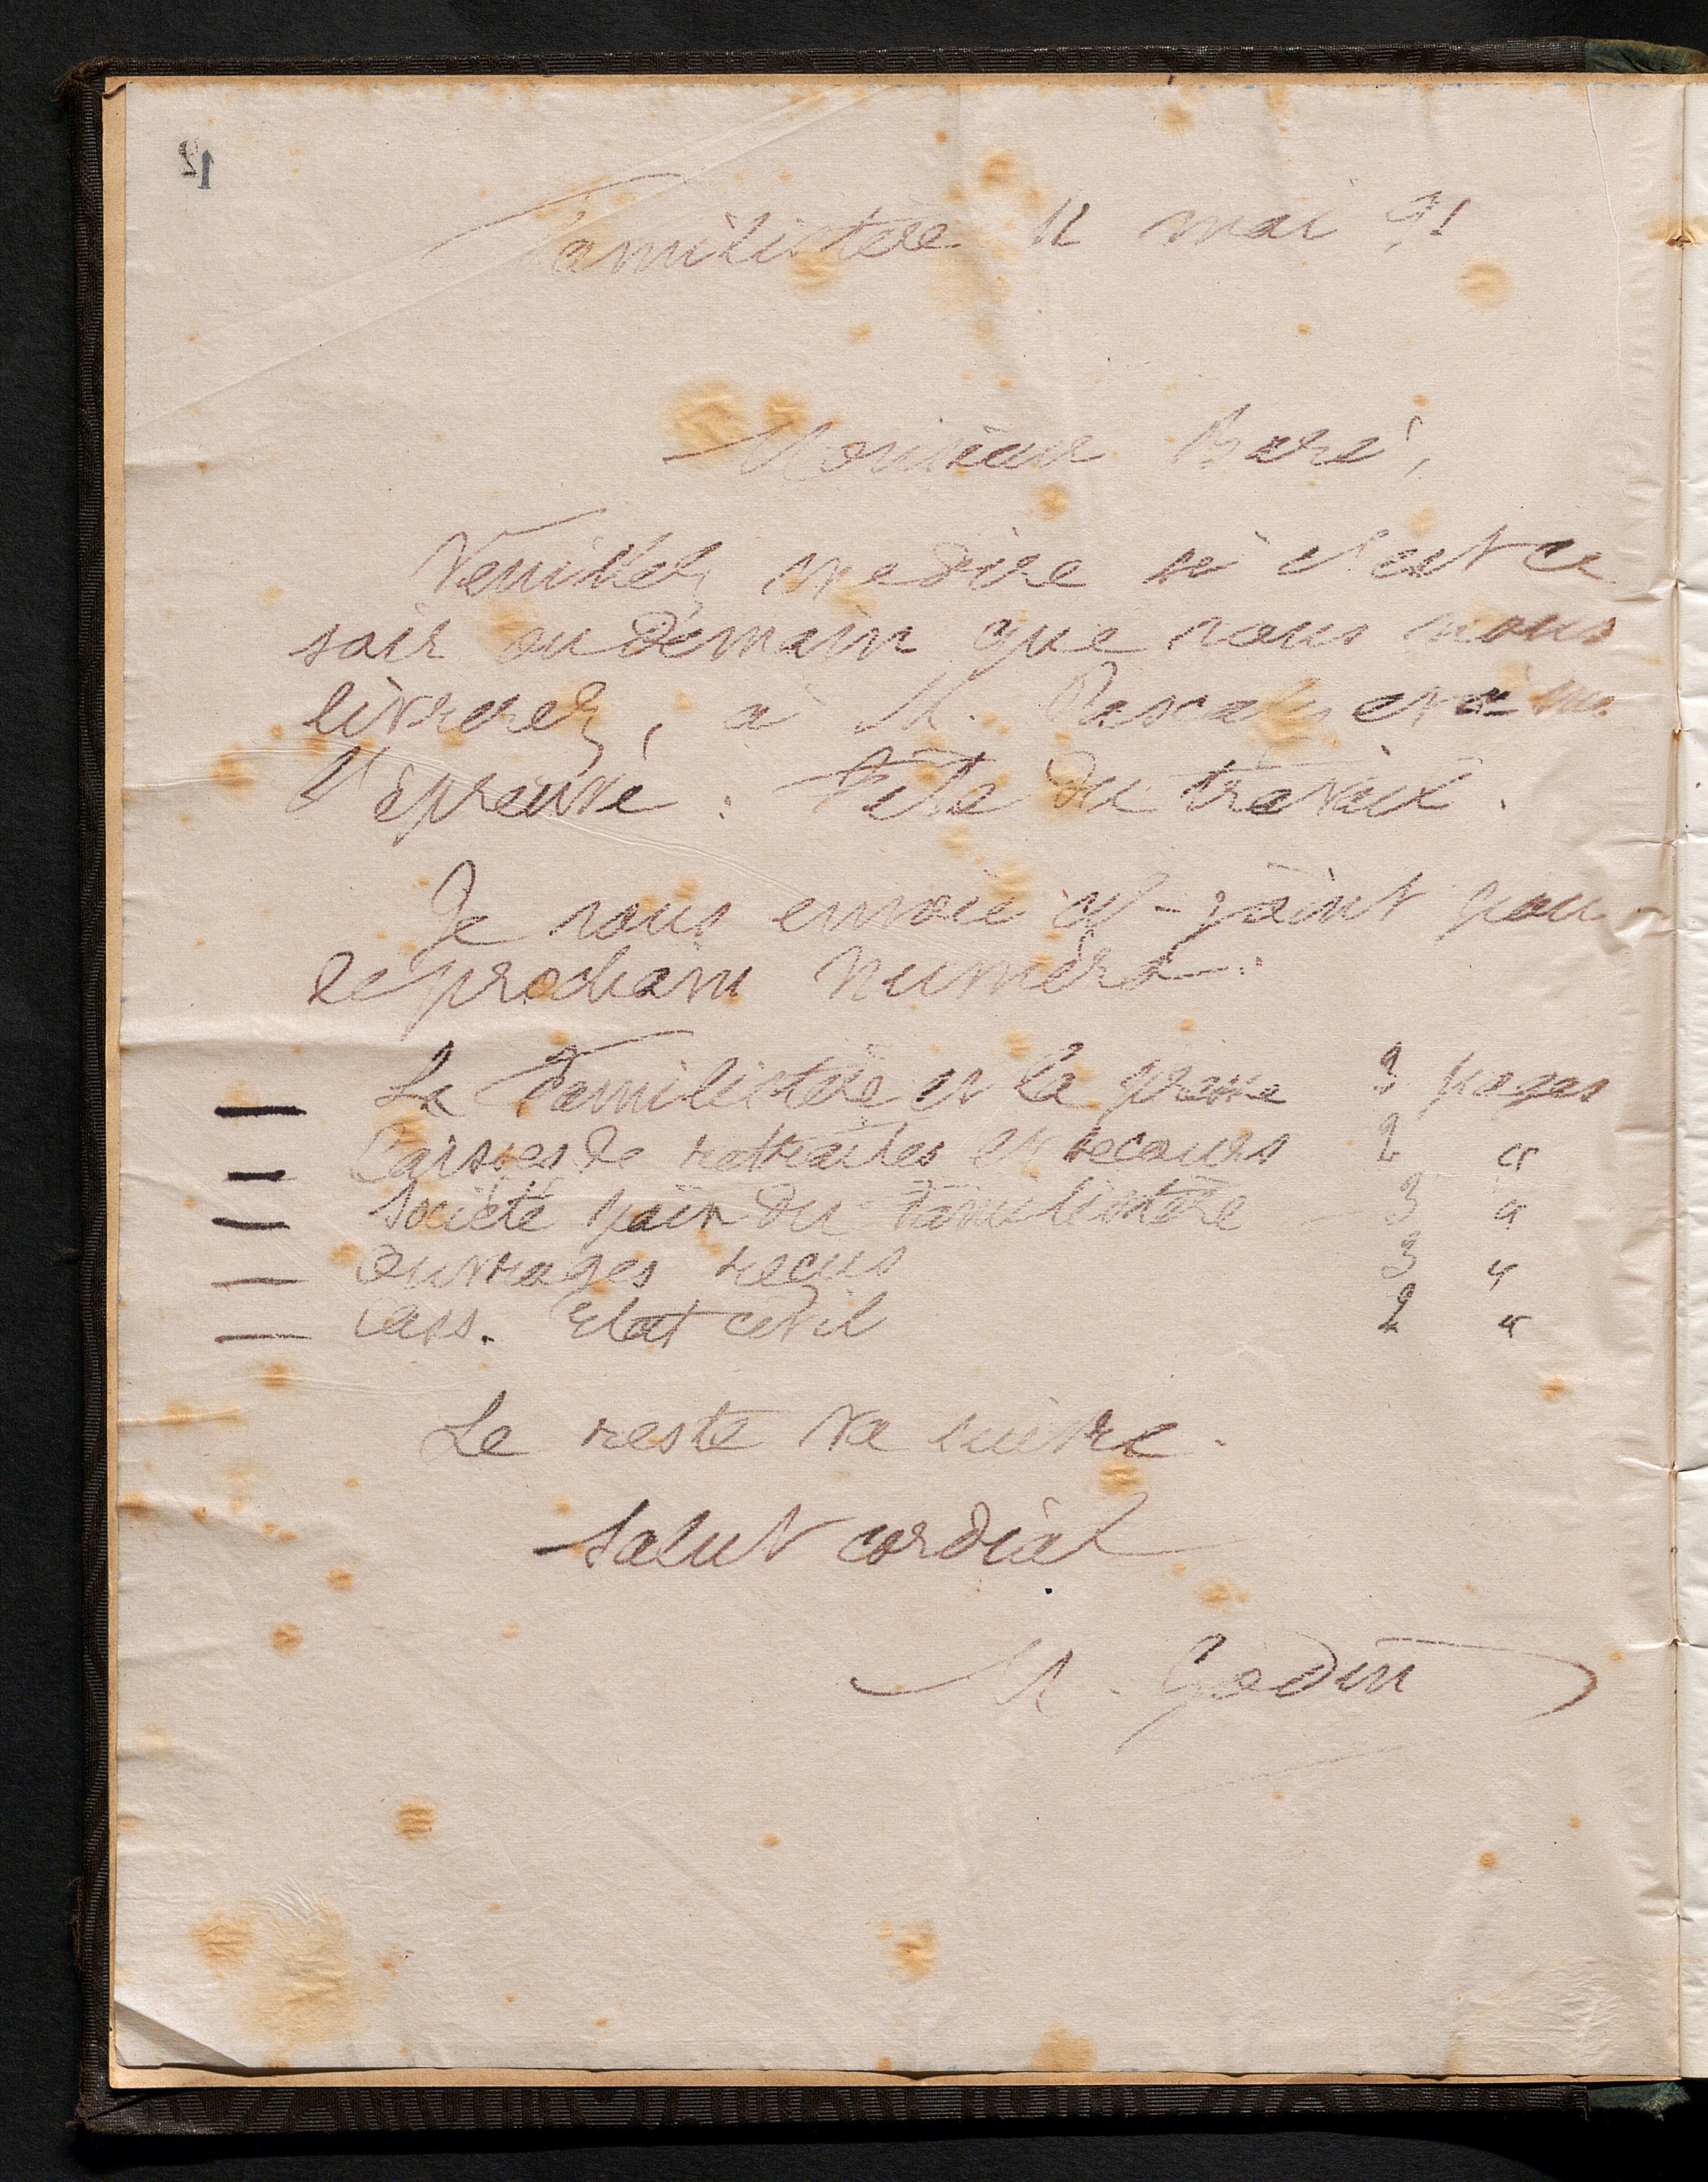 12
Familistère 11 mai 91
Monsieur Baré,
Veuillez me dire si c'est ce
soir ou demain que vous nous
livrerez, à M. Pascaly et à moi
l'épreuve : Fête du travail.
Je vous envoie ci-joint pour
le prochain numéro :
Le Familistère et la presse 3 pages
Caisses de retraites et secours 2 "
Société paix du Familistère 3 "
Ouvrages reçus 3 "
Cass. Etat civil 2 "
Le reste va suivre.
Salut cordial
M. Godin